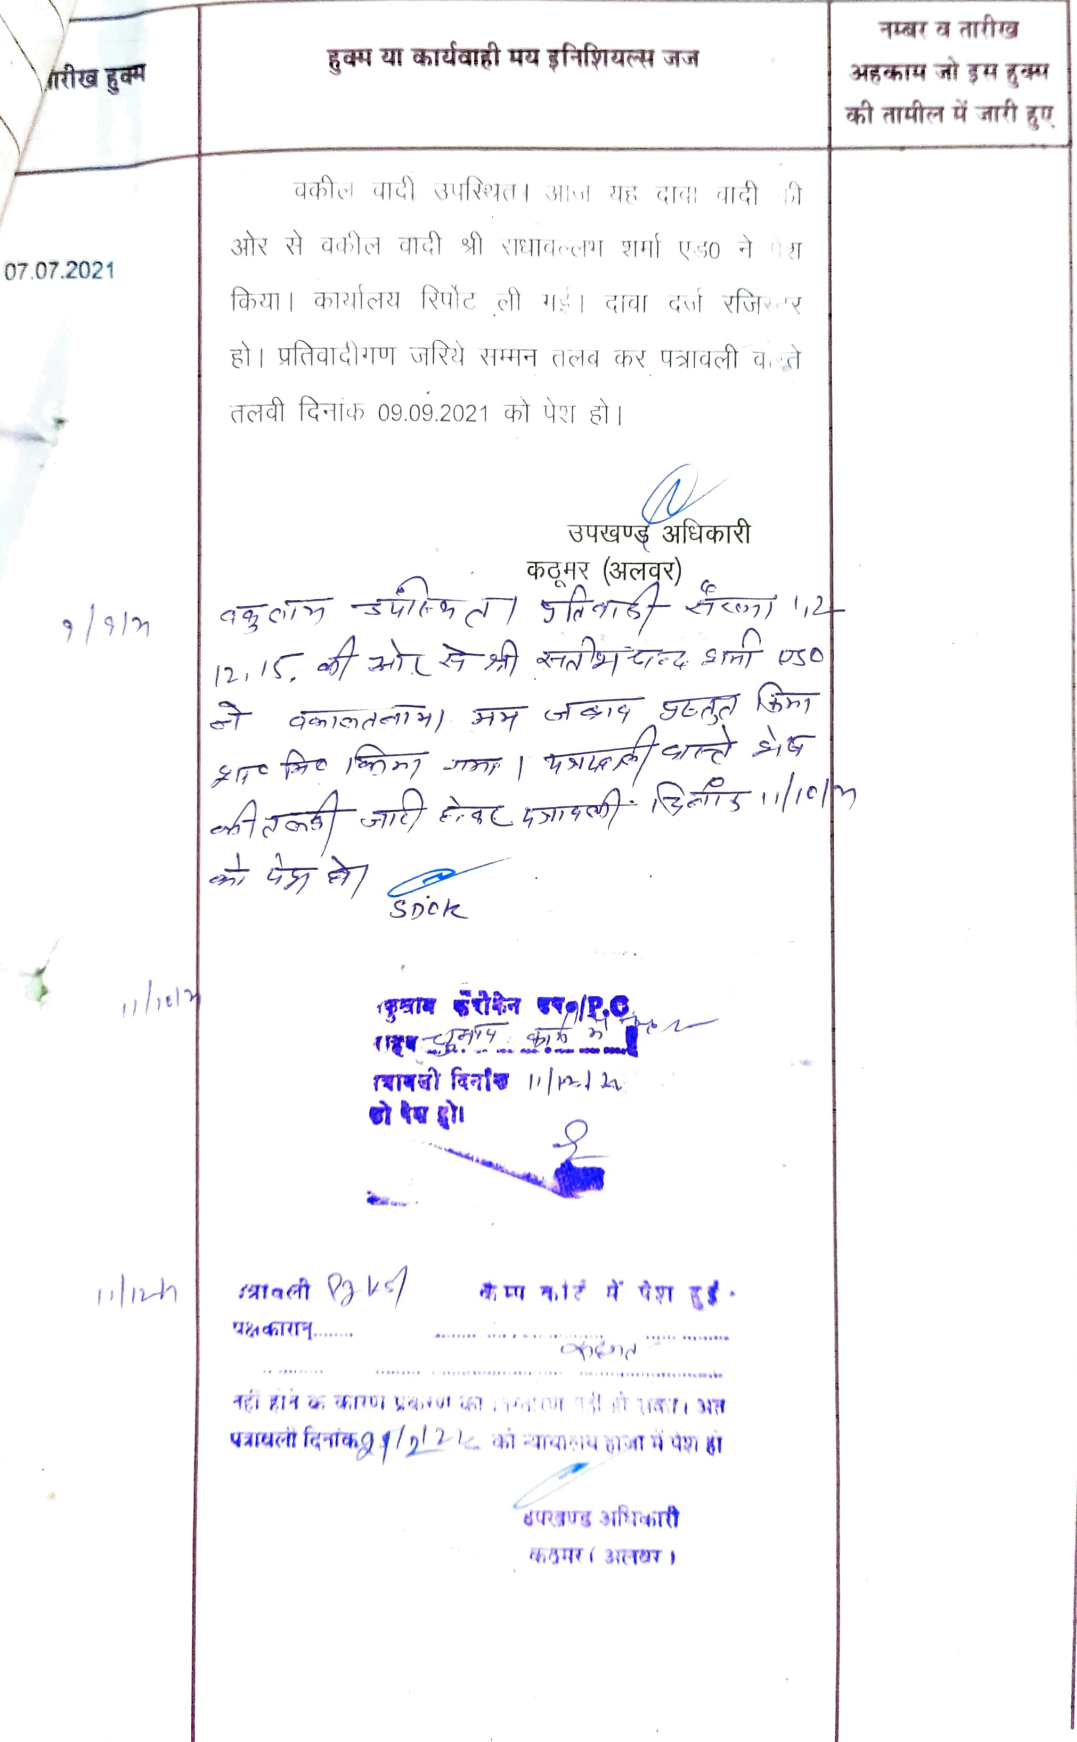 तारीख हुक्म
हुक्म या कार्यवाही मय इनिशियल्स जज
नम्बर व तारीख
अहकाम जो इस हुक्म
की तामील में जारी हुए
07.07.2021
वकील वादी उपस्थित। आज यह दावा वादी की
ओर से वकील वादी श्री राधावल्लभ शर्मा एड0 ने पेश
किया। कार्यालय रिपोट ली गई। दावा दर्ज रजिस्टर
हो। प्रतिवादीगण जरिये सम्मन तलब कर पत्रावली वास्ते
तलवी दिनांक 09.09.2021 को पेश हो।
उपखण्ड अधिकारी
कठूमर (अलवर)
9/9/21
वकुलाय उपस्थित। प्रतिवादी संख्या 1,2
12,15, की ओर से श्री सतीशचन्द शर्मा एड0
ने वकालतनामा मय जबाव प्रस्तुत किया
शा० मि० किया गया। पत्रावली वास्ते शेष
की तलवी जारी होकर पत्रावली दिनांक 11/10/21
को पेश हो।
SDOK
11/10/21
P.O
चुनाव कार्य में
पत्रावली दिनांक 11/12/21
को पेश हो।
11/12/21
पत्रावली कैम्प कोर्ट में पेश हुई
पक्षकारान्
नहीं होने के कारण प्रकरण का निस्तारण नही हो सका। अत
पत्रावली दिनांक को न्यायालय हाजा में पेश हो
उपखण्ड अधिकारी
कठूमर (अलवर)